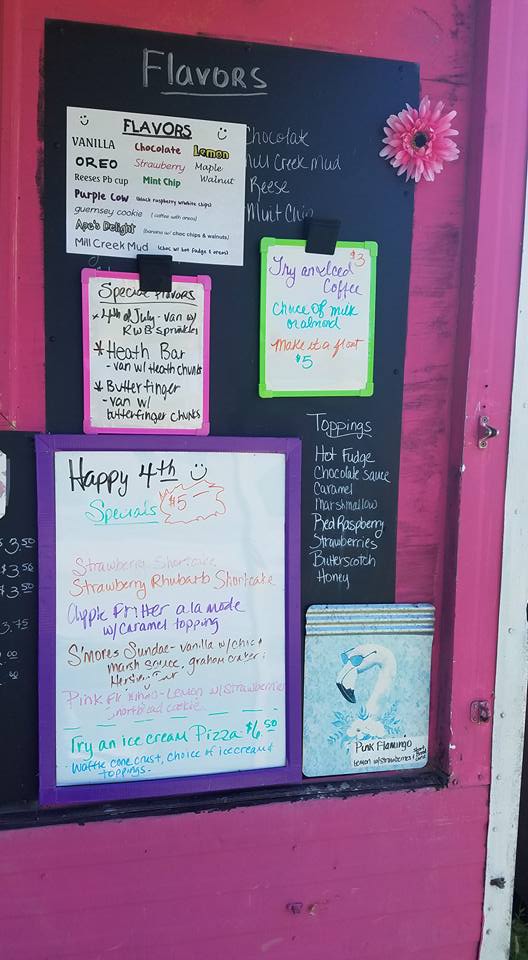 Flavors
FLAVORS
VANILLA Chocolate Lemon
OREO Strawberry Maple Walnut
Reeses Pb cup Mint Chip
Purple Cow (black raspberry w/white chips)
guernsey cookie (coffee with oreos)
Ape's Delight (banana w/ choc chips & walnuts)
Mill Creek Mud (choc w/ hot fudge & oreos)
Chocolate
Mill Creek Mud
Reese
Mint Chip
Special Flavors
* 4th of July - van w/
RWB sprinkles
* Heath Bar
- van w/ Heath chunks
* Butterfinger
- van w/
butterfinger chunks
$3
Try an Iced
Coffee
Choice of milk
or almond
Make it a float
$5
Toppings
Hot Fudge
Chocolate sauce
Caramel
Marshmallow
Red Raspberry
Strawberries
Butterscotch
Honey
Happy 4th
Specials $5
Strawberry Shortcake
Strawberry Rhubarb Shortcake
Apple Fritter a la mode
w/ Caramel topping
S'mores Sundae - vanilla w/ choc &
marsh sauce, graham cracker &
Pink - Lemon w/ Strawberries
shortbread cookie
Try an ice cream Pizza $6.50
Waffle cone crust, choice of ice cream &
toppings -
Pink Flamingo
Lemon w/ Strawberries &
3.50
3.50
3.50
3.75